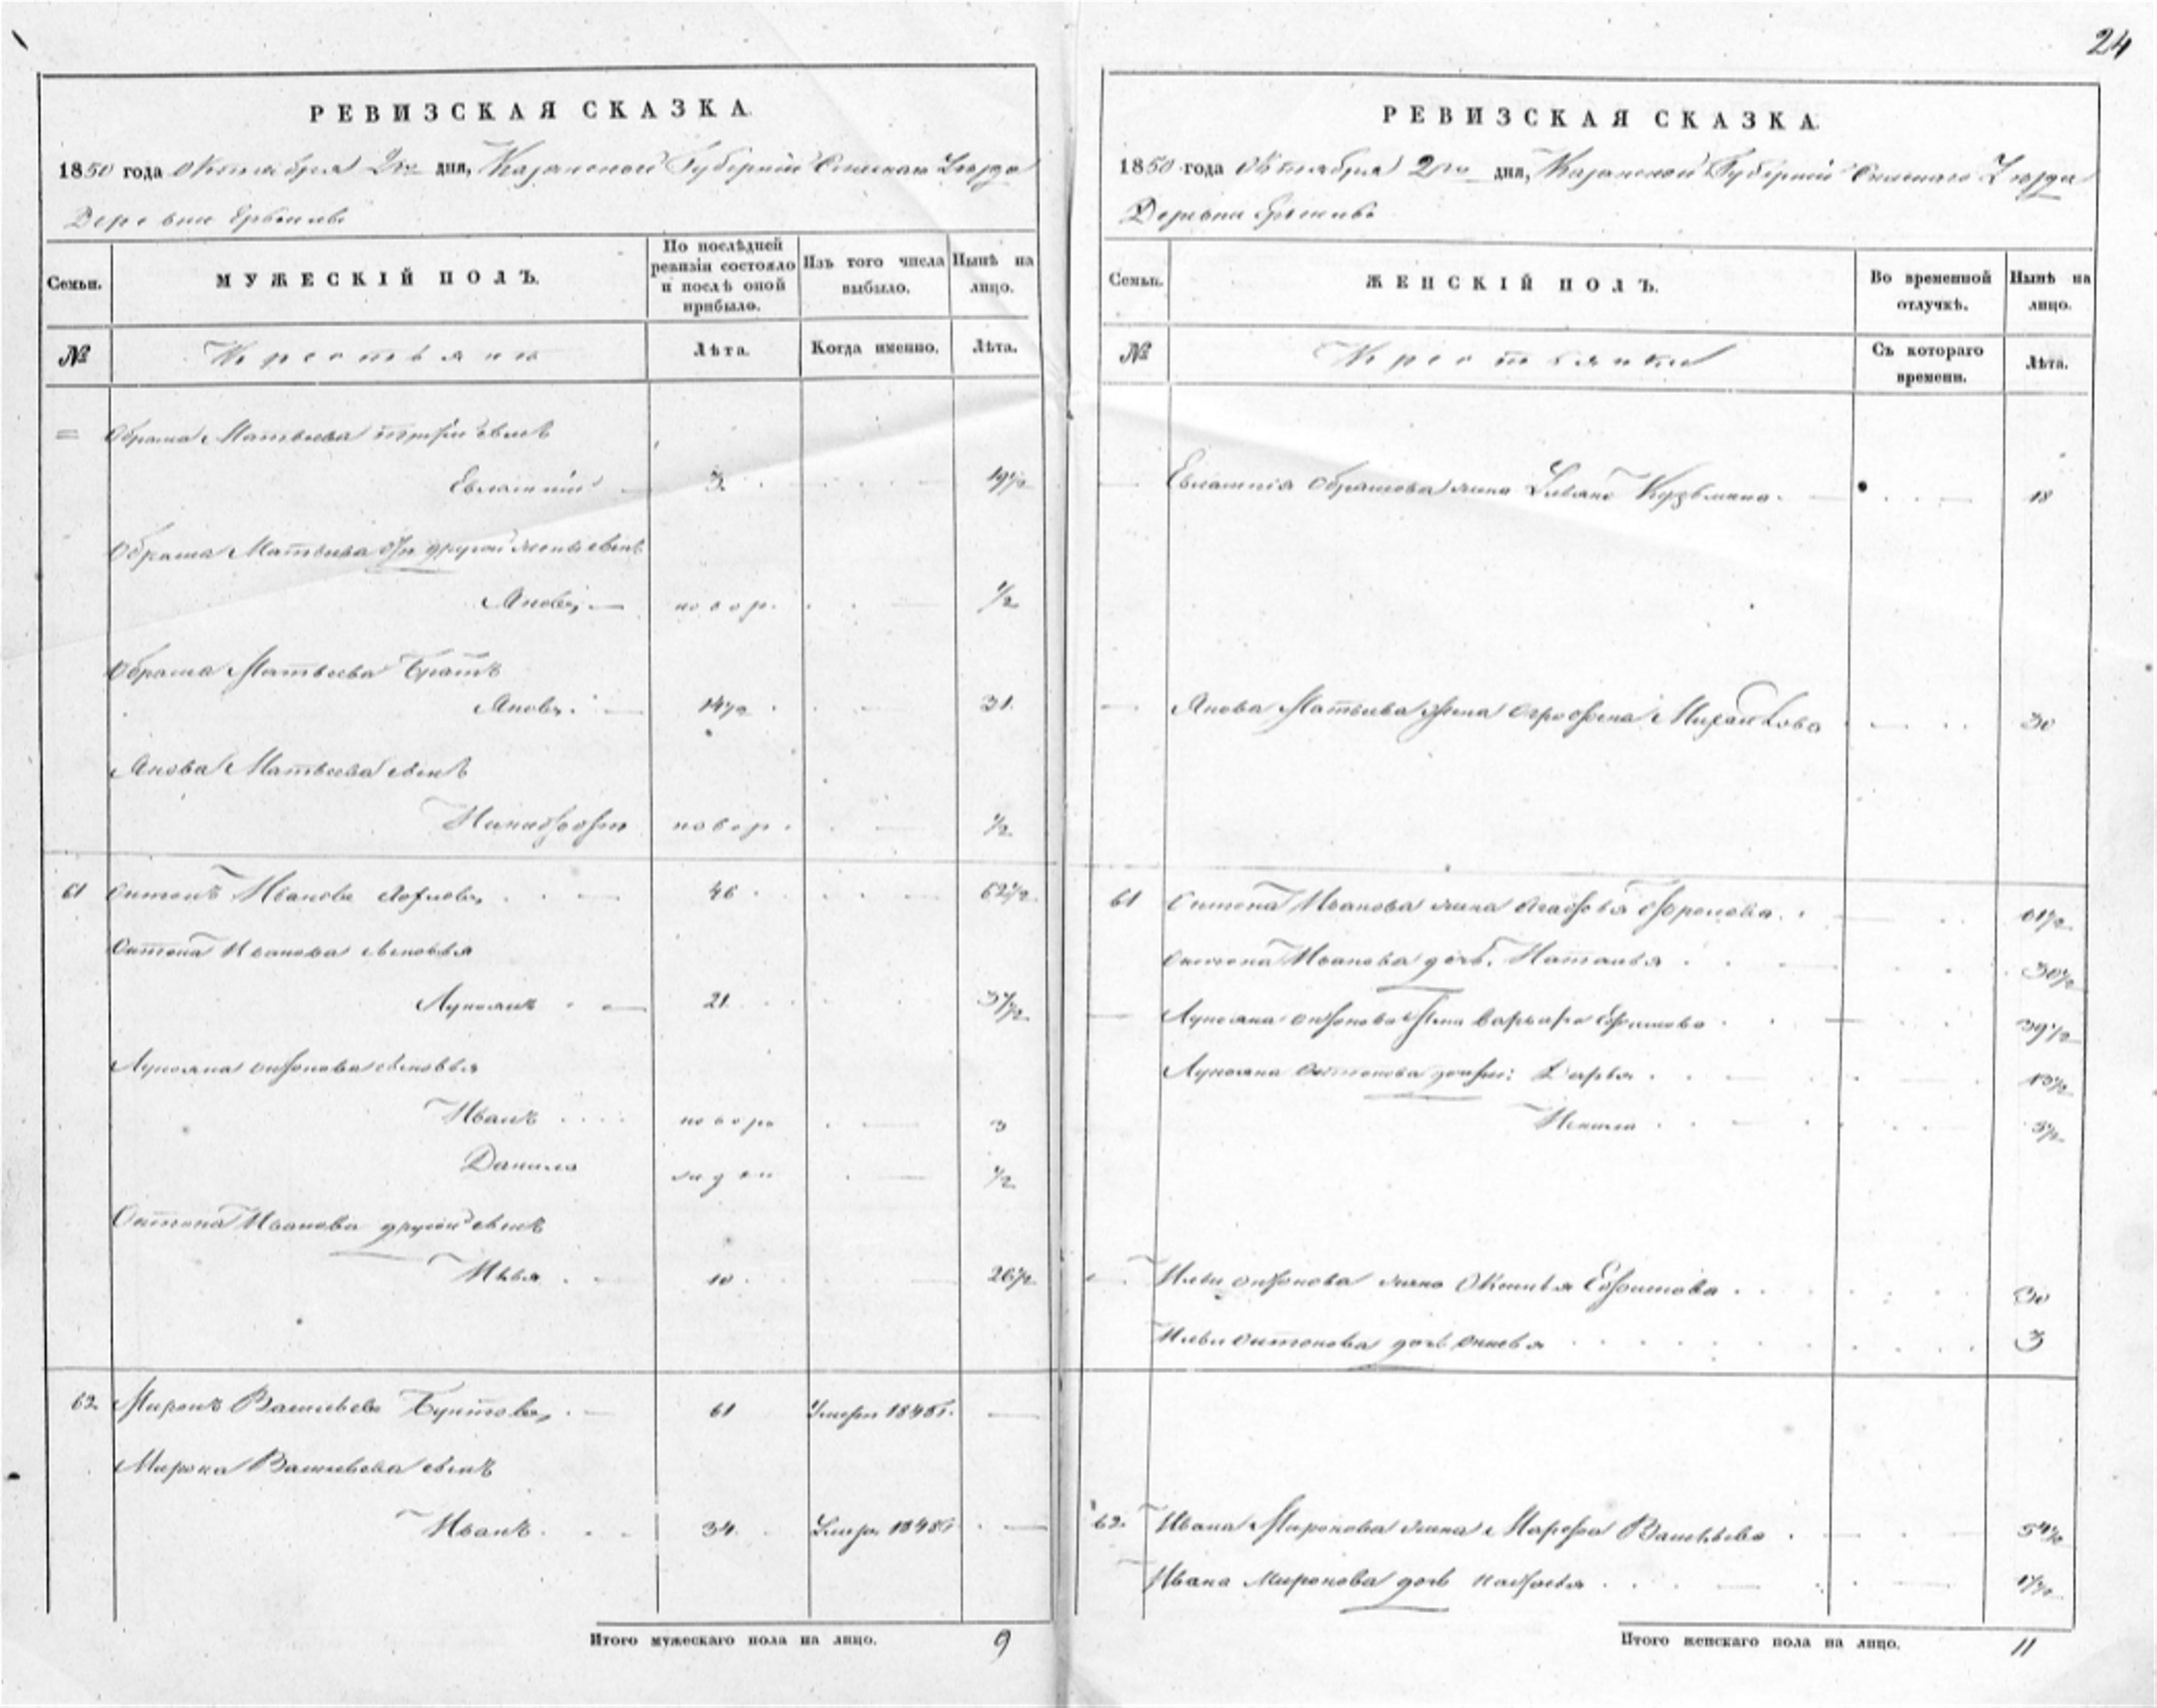 24
РЕВИЗСКАЯ СКАЗКА.
1850 года Октября 2го дня, Казанской Губернiи Спаскаго Уѣзда
Деревни
МУЖЕСКІЙ ПОЛЪ.
Семьи.
По послѣдней ревизіи состояло и послѣ оной прибыло.
Изъ того числа выбыло.
Нынѣ на лицо.
№
Крестьяне
Лѣта.
Когда именно.
Лѣта.
Обрама Матвеева
Евлампiй 3 19½
Обрама Матвеева другой сынъ
Яковъ, новор. ½
Обрама Матвеева братъ
Яковъ 14½ 31
Якова Матвеева сынъ
новор. ½
61 Онтонъ Ивановъ 46 62½
Онтона Иванова сыновья
Лукоянъ 21 37½
Лукояна Онтонова сыновья
Иванъ новор 3
Данила ½
Онтона Иванова другой сынъ
Илья 10 26½
62 Миронъ Васильевъ 61 Умеръ 1848г.
Мирона Васильева сынъ
Иванъ 34 Умеръ 1848г
Итого мужескаго пола на лицо. 9
РЕВИЗСКАЯ СКАЗКА.
1850 года Октября 2го дня, Казанской Губернiи Спаскаго Уѣзда
Деревни
Семьи.
ЖЕНСКІЙ ПОЛЪ.
Во временной отлучкѣ.
Нынѣ на лицо.
№
Крестьянки
Съ котораго времени.
Лѣта.
Евлампiя Обрамова жена Ульяна Кузьмина 18
Якова Матвеева жена Огрофена Михайлова 30
61 Онтона Иванова жена Агафья Фролова 61½
Онтона Иванова дочь Наталья 30½
Лукояна Онтонова жена Варвара Ефимова 39½
Лукояна Онтонова дочери: Дарья 13½
3½
Ильи Онтонова жена Оксинья Ефимова 30
Ильи Онтонова дочь 3
62 Ивана Миронова жена Марфа Васильева 54½
Ивана Миронова дочь Настасья 17½
Итого женскаго пола на лицо. 11